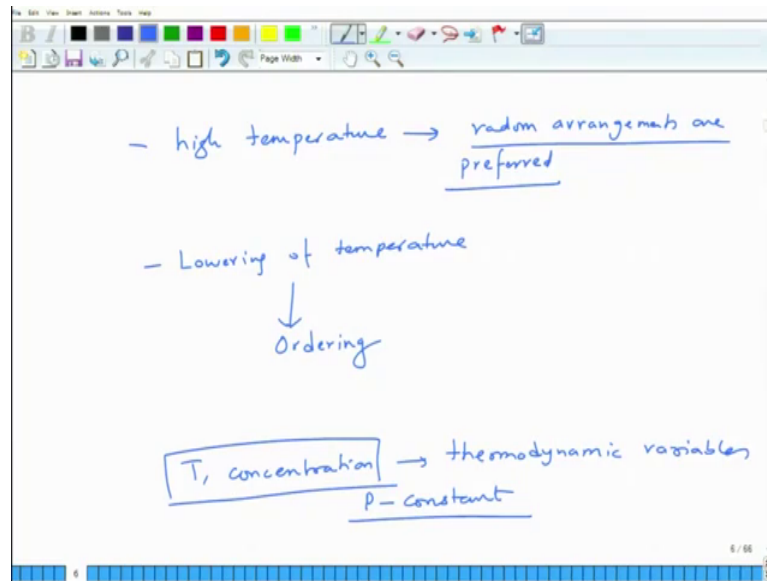 File Edit View Insert Actions Tools Help
B I
Page Width
- high temperature → radom arrangements are
preferred
- Lowering of temperature
↓
Ordering
T, concentration → thermodynamic variables
P - constant
6 / 66
6